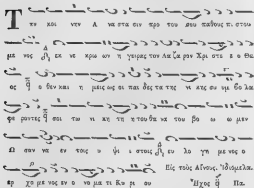 Τ ην κοι νην Α να στα σιν προ του σου παθους πι στου
με νος εκ νε κρω ων η γειρας τον Λα ζα ρον Χρι στε ο Θε
ος ο θεν και η μεις ως οι παι δες τα της νι κης συμ βο λα
φε ροντες σοι τω νι κη τη του θα να του βο ω ω μεν
Ω σαν να εν τοις υ ψι ι στοις ευ λο γη με νος ο
ερ χο με νος εν ο νο μα τι Κυ ρι ου
Εἰς τοὺς Αἴνους. Ἰδιόμελα.
Ἦχος Πα.